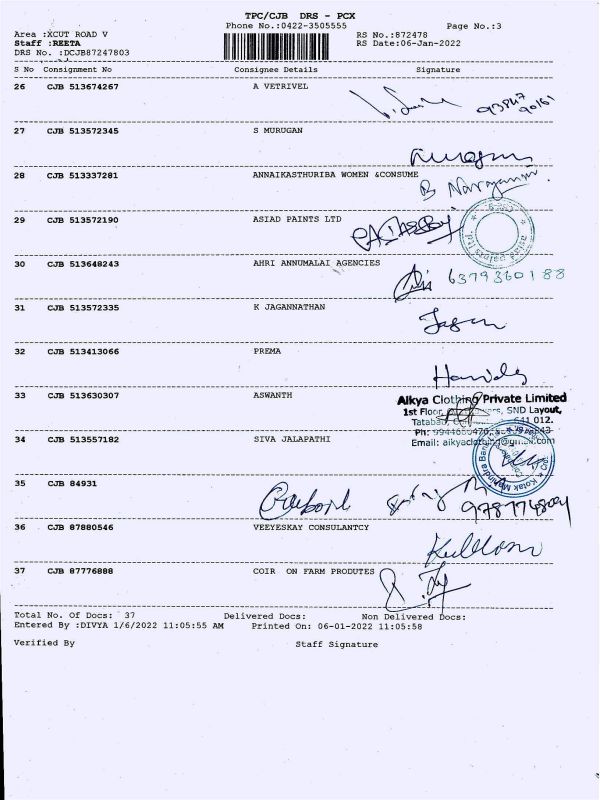 TPC/CJB DRS - PCX
Phone No.:0422-3505555 Page No.:3
Area :XCUT ROAD V RS No.:872478
Staff :REETA RS Date:06-Jan-2022
DRS No. :DCJB87247803
S No Consignment No Consignee Details Signature
26 CJB 513674267 A VETRIVEL
27 CJB 513572345 S MURUGAN
28 CJB 513337281 ANNAIKASTHURIBA WOMEN &CONSUME
B Narayanan
29 CJB 513572190 ASIAD PAINTS LTD
30 CJB 513648243 AHRI ANNUMALAI AGENCIES
6379360188
31 CJB 513572335 K JAGANNATHAN
Jagan
32 CJB 513413066 PREMA
33 CJB 513630307 ASWANTH
Alkya Clothing Private Limited
1st Floor, SND Layout,
Tatabad, 641 012.
34 CJB 513557182 SIVA JALAPATHI
35 CJB 84931
36 CJB 87880546 VEEYESKAY CONSULANTCY
37 CJB 87776888 COIR ON FARM PRODUTES
Total No. Of Docs: 37 Delivered Docs: Non Delivered Docs:
Entered By :DIVYA 1/6/2022 11:05:55 AM Printed On: 06-01-2022 11:05:58
Verified By Staff Signature